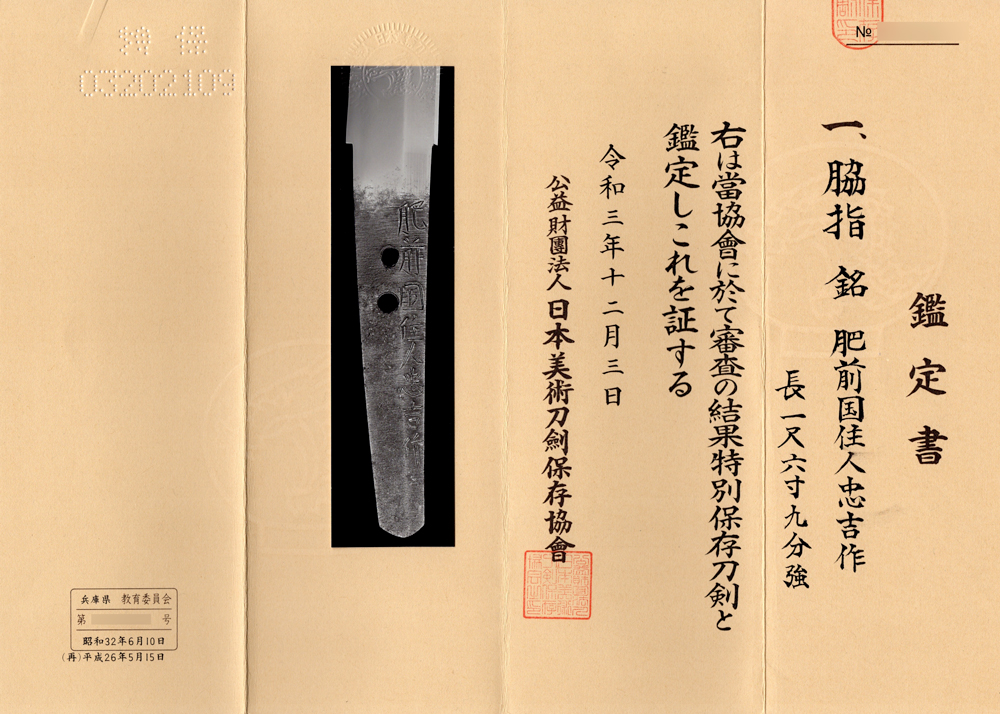 №
鑑定書
一、脇指 銘 肥前国住人忠吉作
長一尺六寸九分強
右は當協會に於て審査の結果特別保存刀剣と
鑑定しこれを証する
令和三年十二月三日
公益財團法人日本美術刀劍保存協會
肥前国住人忠吉作
特保
03202109
兵庫県 教育委員会
第 号
昭和32年6月10日
(再)平成26年5月15日